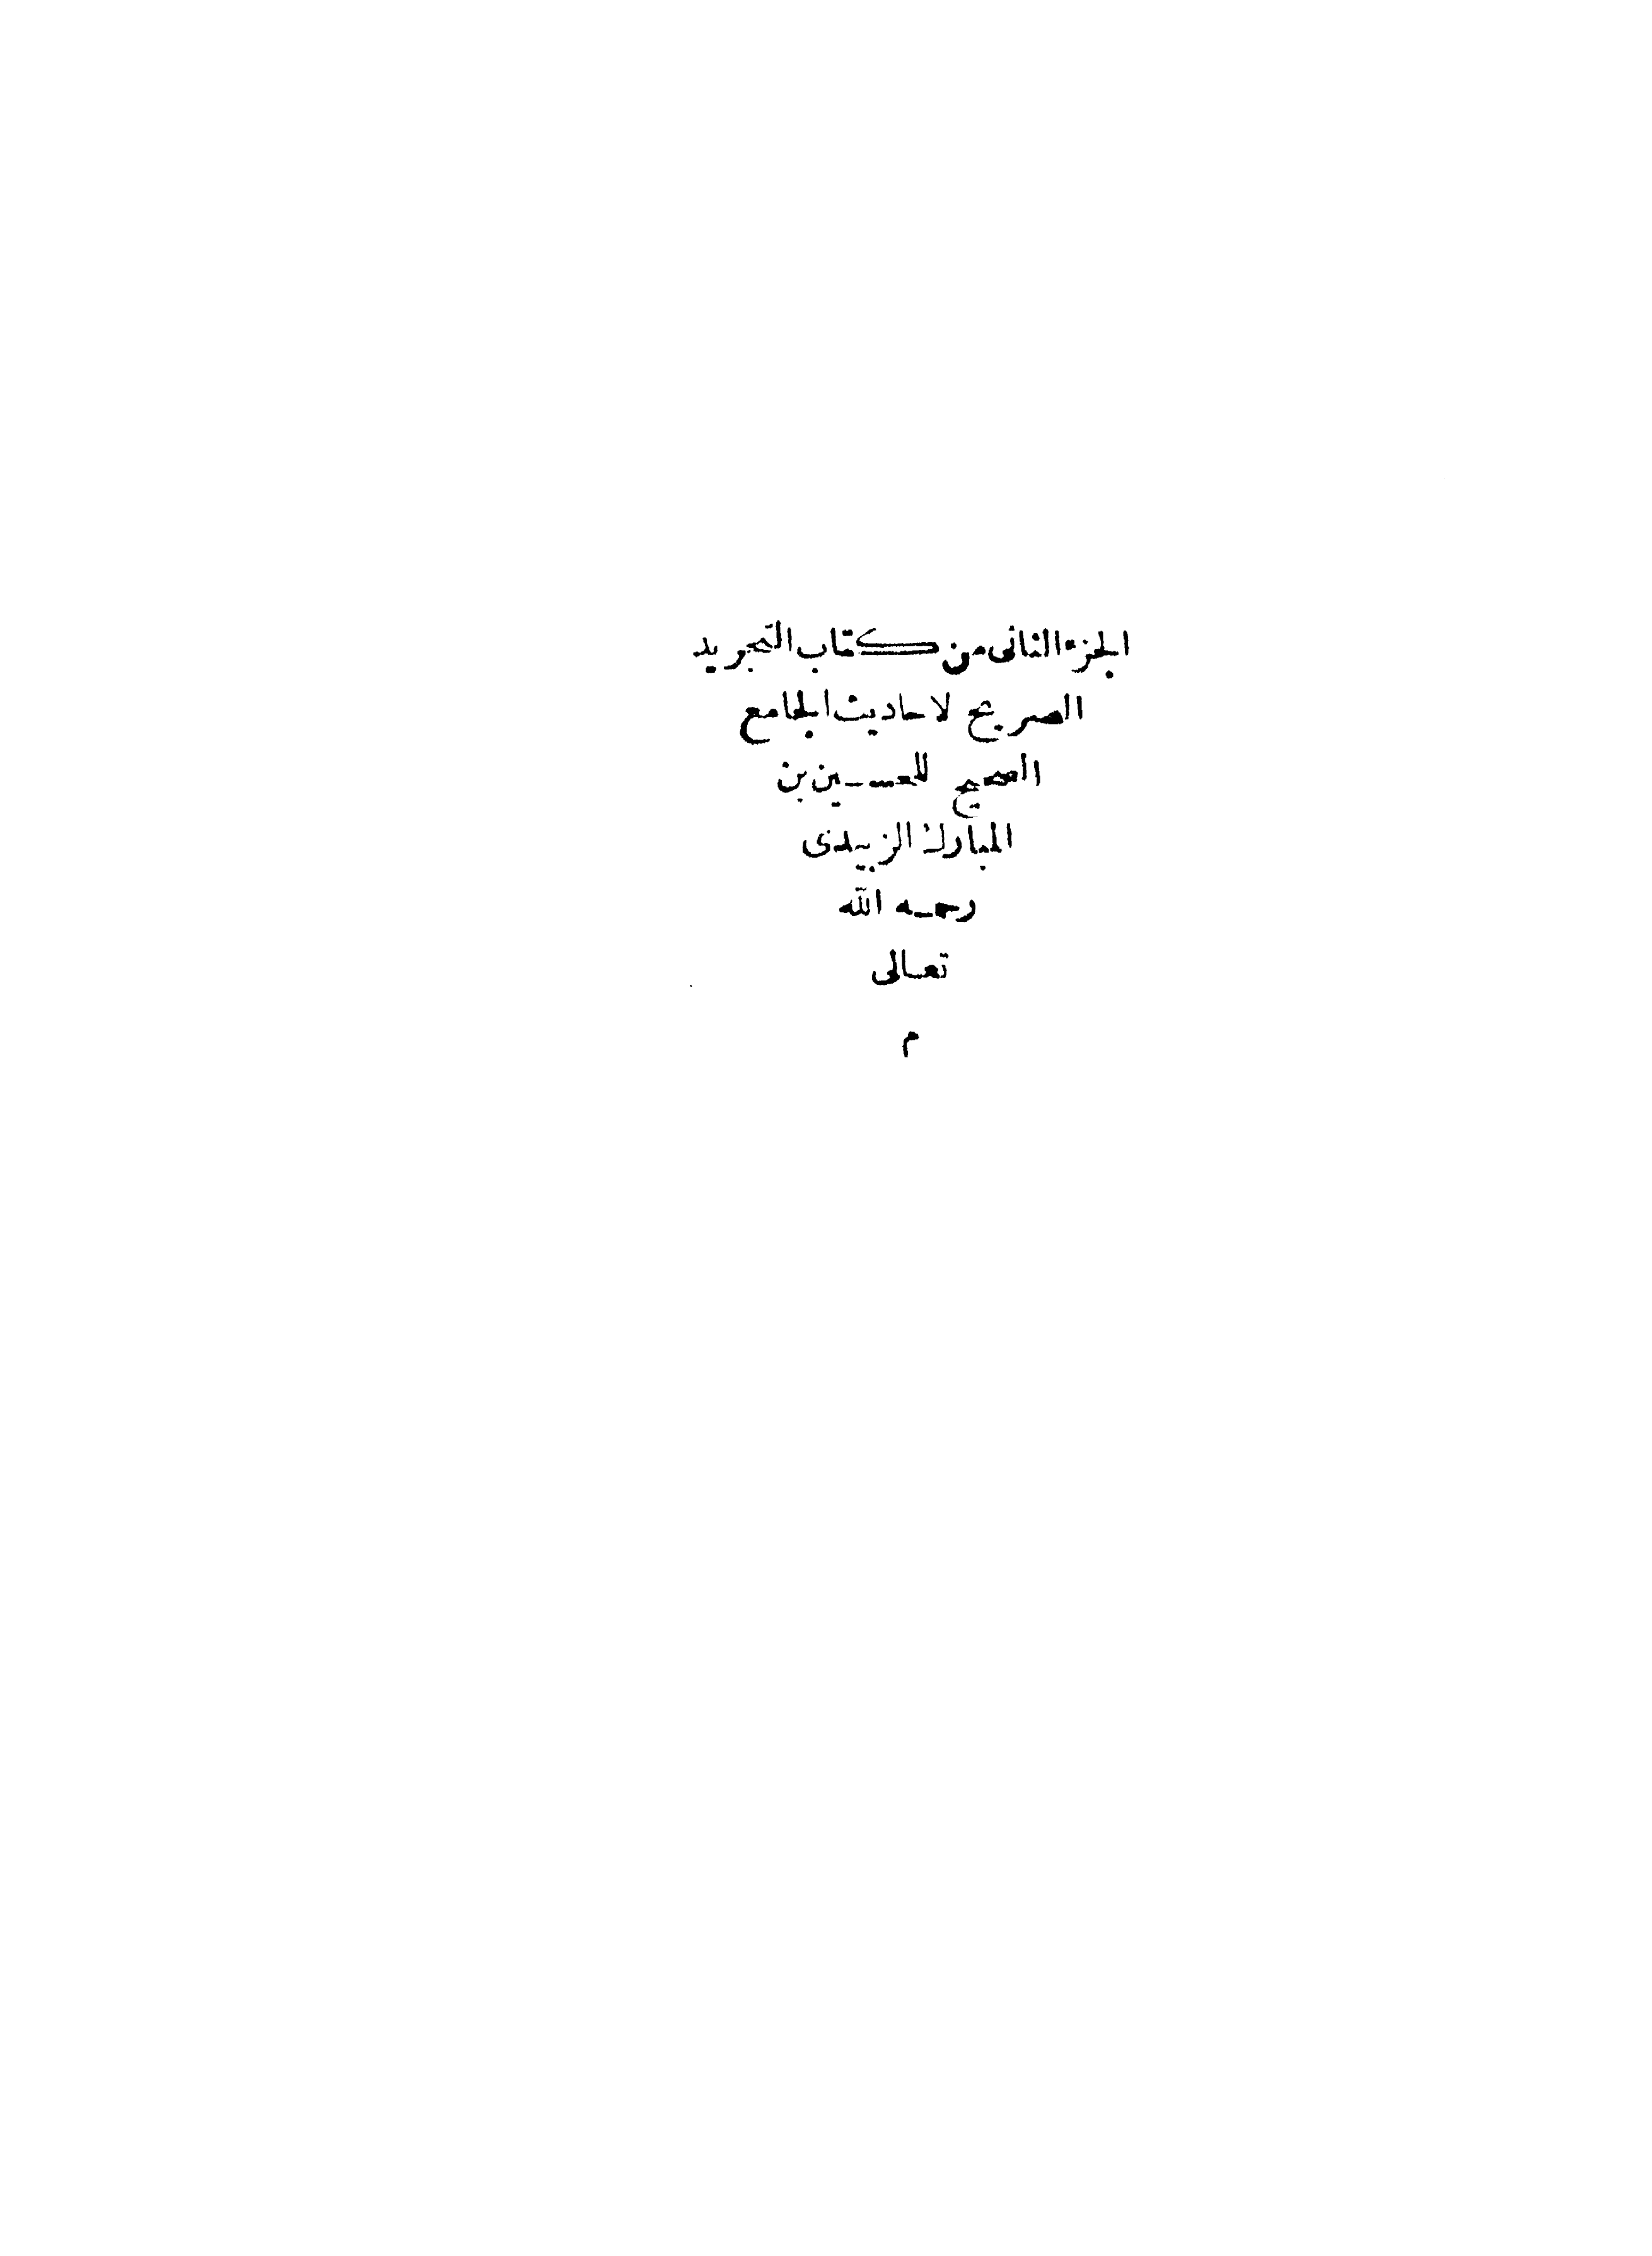 الجزء الثانى من كتاب التجريد
الصريح لاحاديث الجامع
الصحيح للحسين بن
المبارك الزبيدى
رحمه الله
تعالى
م